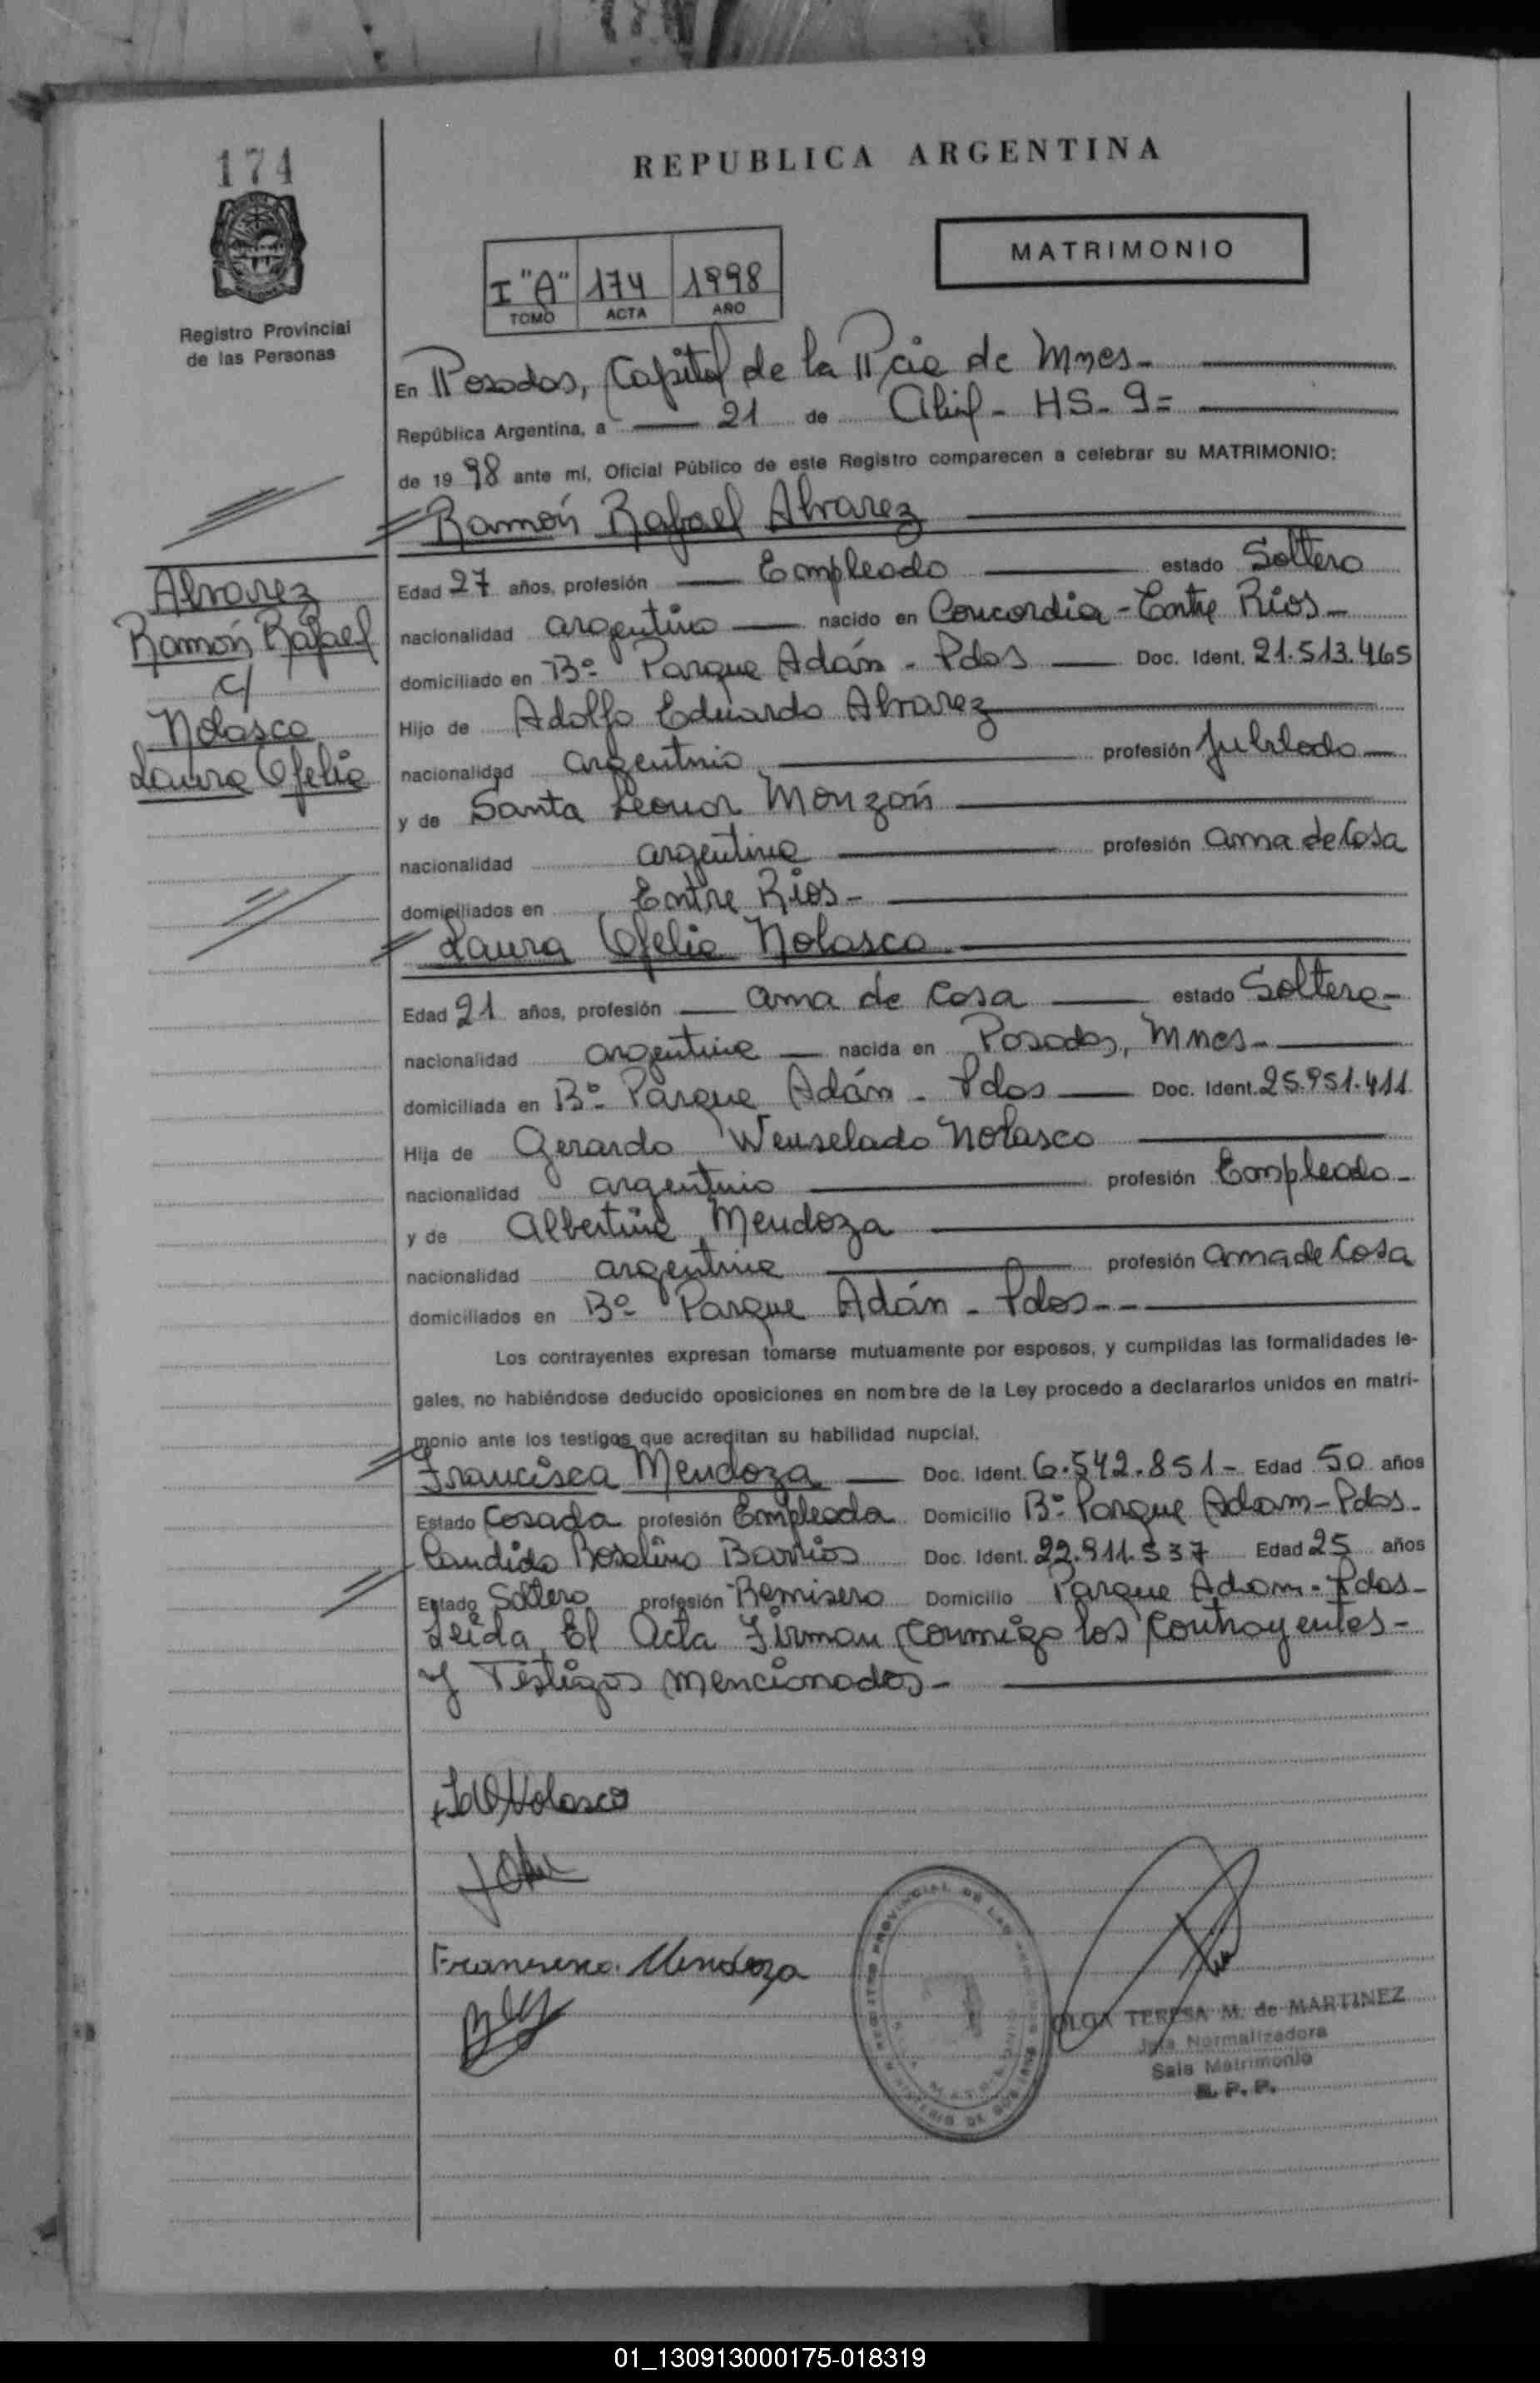 174
REPUBLICA ARGENTINA
MATRIMONIO
I "A" 174 1998
TOMO ACTA AÑO
Registro Provincial
de las Personas
En Posadas, Capital de la Pcia de Mnes-
República Argentina, a 21 de Abril - HS- 9=
de 19 98 ante mí, Oficial Público de este Registro comparecen a celebrar su MATRIMONIO:
Ramón Rafael Alvarez
Alvarez
Ramón Rafael
c/
Nolasco
Laura Ofelia
Edad 27 años, profesión Empleado estado Soltero
nacionalidad argentino nacido en Concordia - Entre Rios-
domiciliado en Bº Parque Adán - Pdas Doc. Ident. 21.513.465
Hijo de Adolfo Eduardo Alvarez
nacionalidad argentino profesión Jubilado
y de Santa Leonor Monzón
nacionalidad argentina profesión ama de Casa
domiciliados en Entre Rios-
Laura Ofelia Nolasco
Edad 21 años, profesión ama de Casa estado Soltera-
nacionalidad argentina nacida en Posadas, Mnes-
domiciliada en Bº Parque Adán - Pdas Doc. Ident. 25.951.411
Hija de Gerardo Wenselado Nolasco
nacionalidad argentino profesión Empleado-
y de Albertina Mendoza
nacionalidad argentina profesión ama de Casa
domiciliados en Bº Parque Adán - Pdas--
Los contrayentes expresan tomarse mutuamente por esposos, y cumplidas las formalidades le-
gales, no habiéndose deducido oposiciones en nombre de la Ley procedo a declararlos unidos en matri-
monio ante los testigos que acreditan su habilidad nupcial.
Francisca Mendoza Doc. Ident. 6.542.851- Edad 50 años
Estado Casada profesión Empleada Domicilio Bº Parque Adam - Pdas-
Candido Roselino Barrios Doc. Ident. 22.911.537 Edad 25 años
Estado Soltero profesión Remisero Domicilio Parque Adam - Pdas-
Leida El Acta Firman Conmigo los Contrayentes-
y Testigos mencionados-
Nolasco
Francisca Mendoza
OLGA TERESA M. de MARTINEZ
Jefa Normalizadora
Sala Matrimonio
R. P. P.
01_130913000175-018319